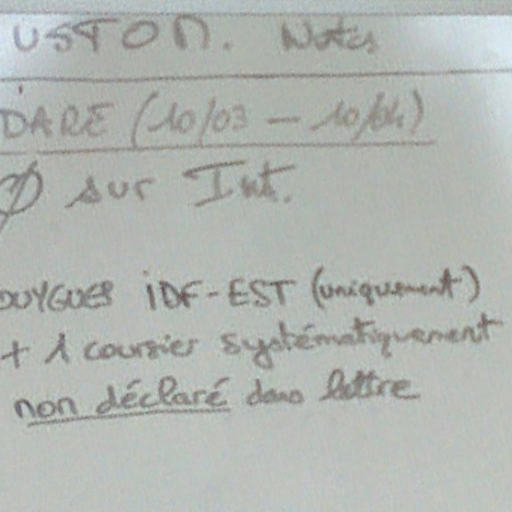 USTOM. Notes
DARE (10/03 - 10/04)
Ø sur Int.
OUYGUES IDF-EST (uniquement)
+ 1 coursier systématiquement
non déclaré dans lettre